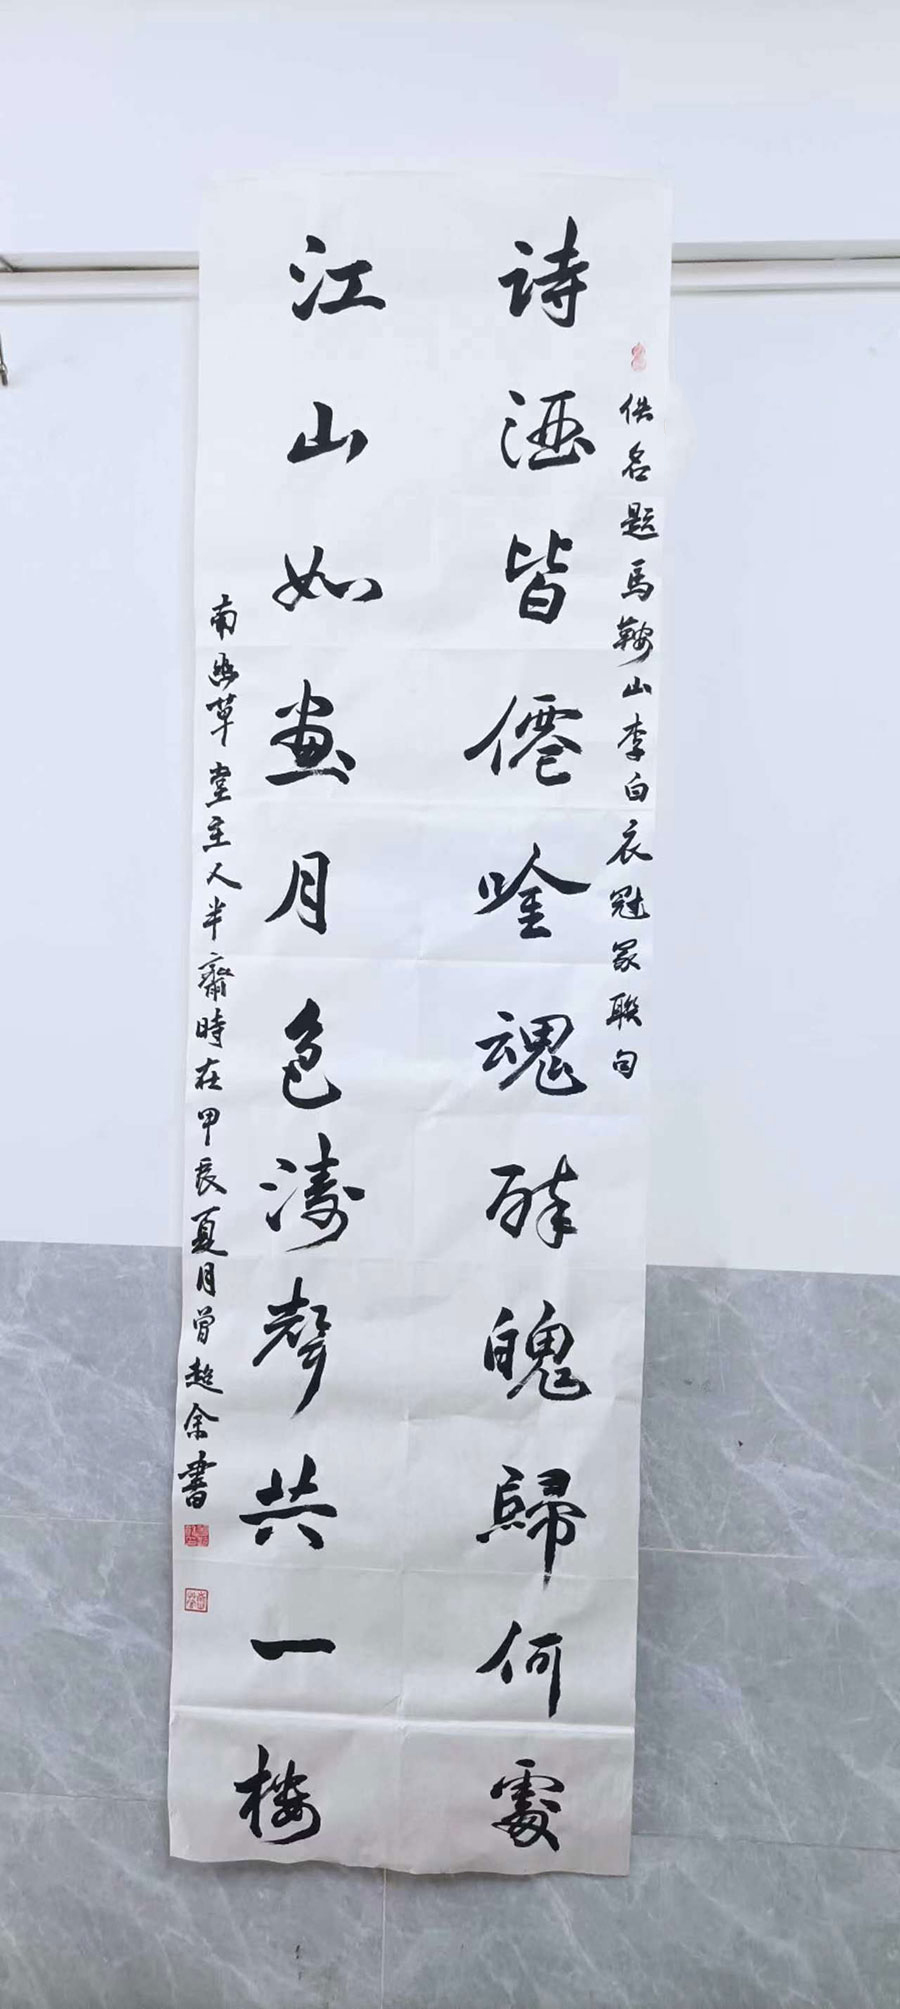 佚名题馬鞍山李白衣冠冢聯句
诗酒皆僊吟魂醉魄歸何處
江山如畫月色濤聲共一楼
南幽草堂主人半齋時在甲辰夏月曾超余書